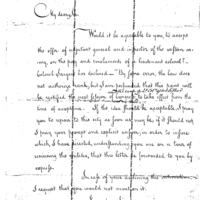 My dear Sir
Would it be agreeable to you, to accept
the office of adjutant general and inspector of the uniform army,
on the pay and emoluments of a lieutenant colonel?
Colonel Sargent has declined. By some error, the law does
not authorize rank, but I am persuaded that this point will
be rectified the next session of Congress, to take effect from the
time of acceptance. If the idea should be acceptable, I pray
you to repair to this city as soon as may be; if it should not
I pray your prompt and explicit answer, in order to inform
which, I have directed, understanding you are on a tour of
surveying the vicinities, that this letter be forwarded to you by
express.
In case of your declining the
I request that you would not mention it.